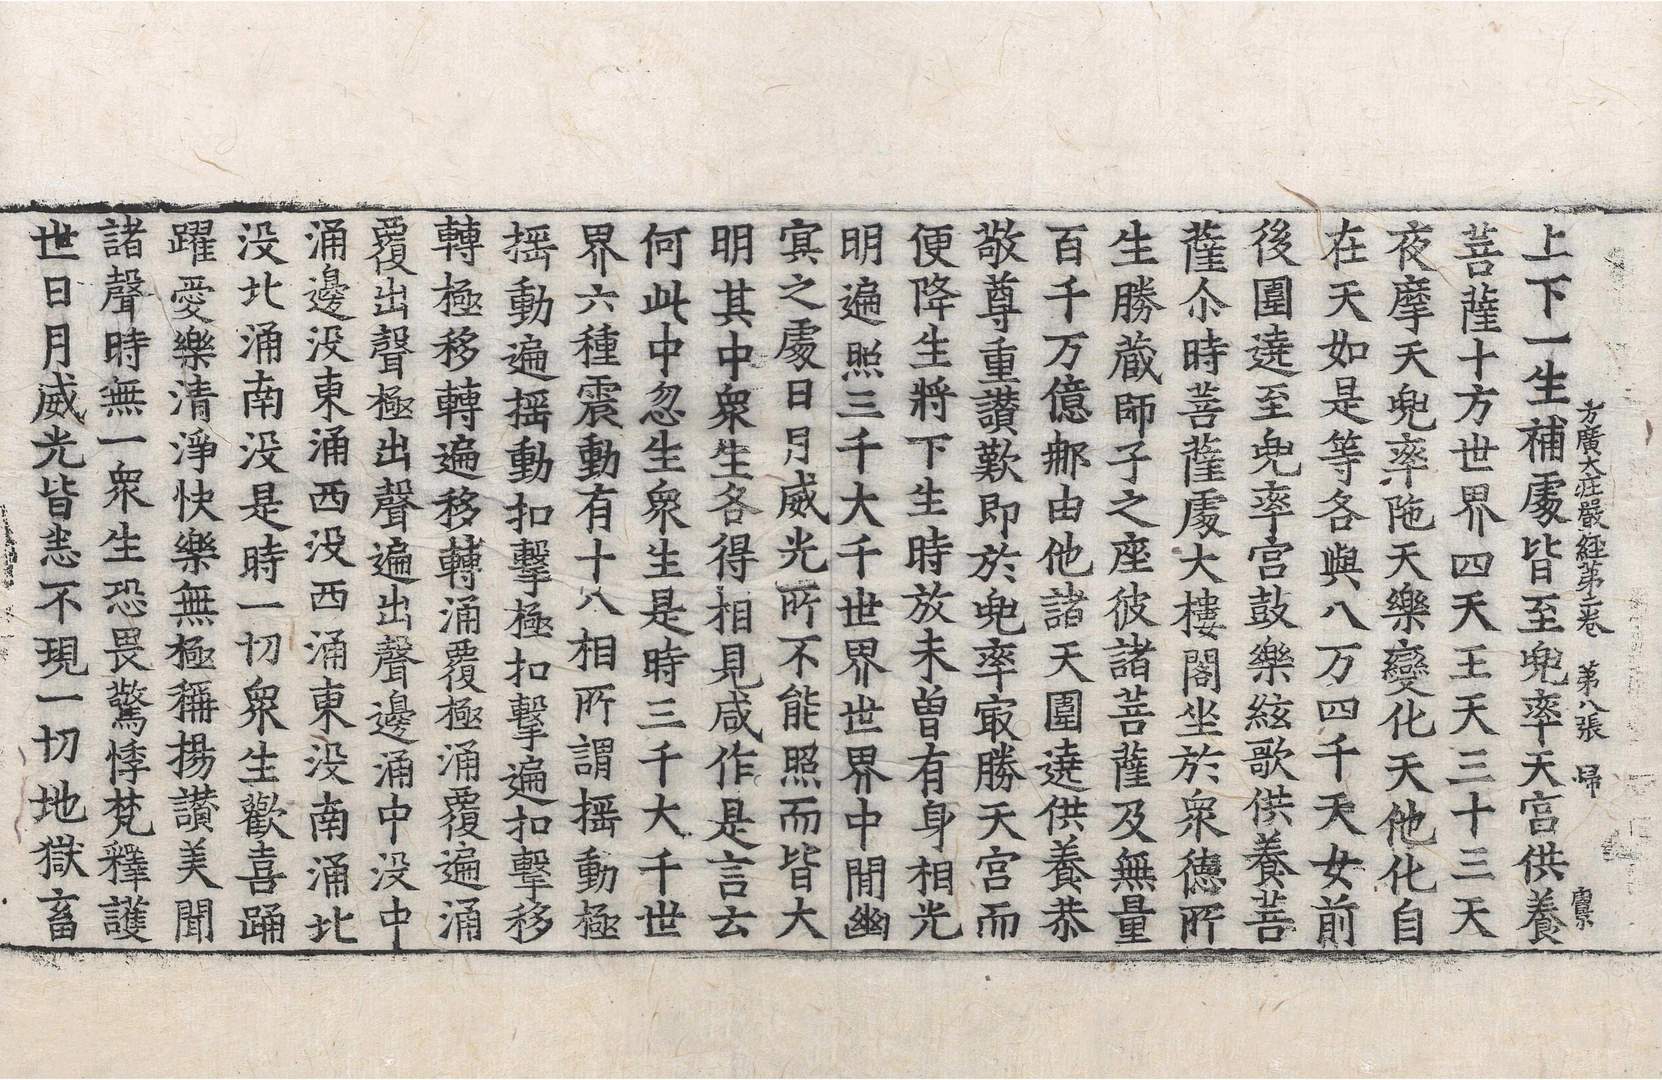 方廣大莊嚴經第二卷 第八張 歸
上下一生補處皆至兜率天宮供養
菩薩十方世界四天王天三十三天
夜摩天兜率陁天樂變化天他化自
在天如是等各與八万四千天女前
後圍遶至兜率宮鼓樂絃歌供養菩
薩尒時菩薩處大樓閣坐於衆德所
生勝蔵師子之座彼諸菩薩及無量
百千万億那由他諸天圍遶供養恭
敬尊重讃歎即於兜率㝡勝天宮而
便降生將下生時放未曽有身相光
明遍照三千大千世界世界中閒幽
㝠之處日月威光所不能照而皆大
明其中衆生各得相見咸作是言云
何此中忽生衆生是時三千大千世
界六種震動有十八相所謂揺動極
揺動遍揺動扣擊極扣擊遍扣擊移
轉極移轉遍移轉涌覆極涌覆遍涌
覆出聲極出聲遍出聲邊涌中没中
涌邊没東涌西没西涌東没南涌北
没北涌南没是時一切衆生歡喜踊
躍愛樂清淨快樂無極稱揚讃美聞
諸聲時無一衆生恐畏驚悸梵釋護
世日月威光皆悉不現一切地獄畜